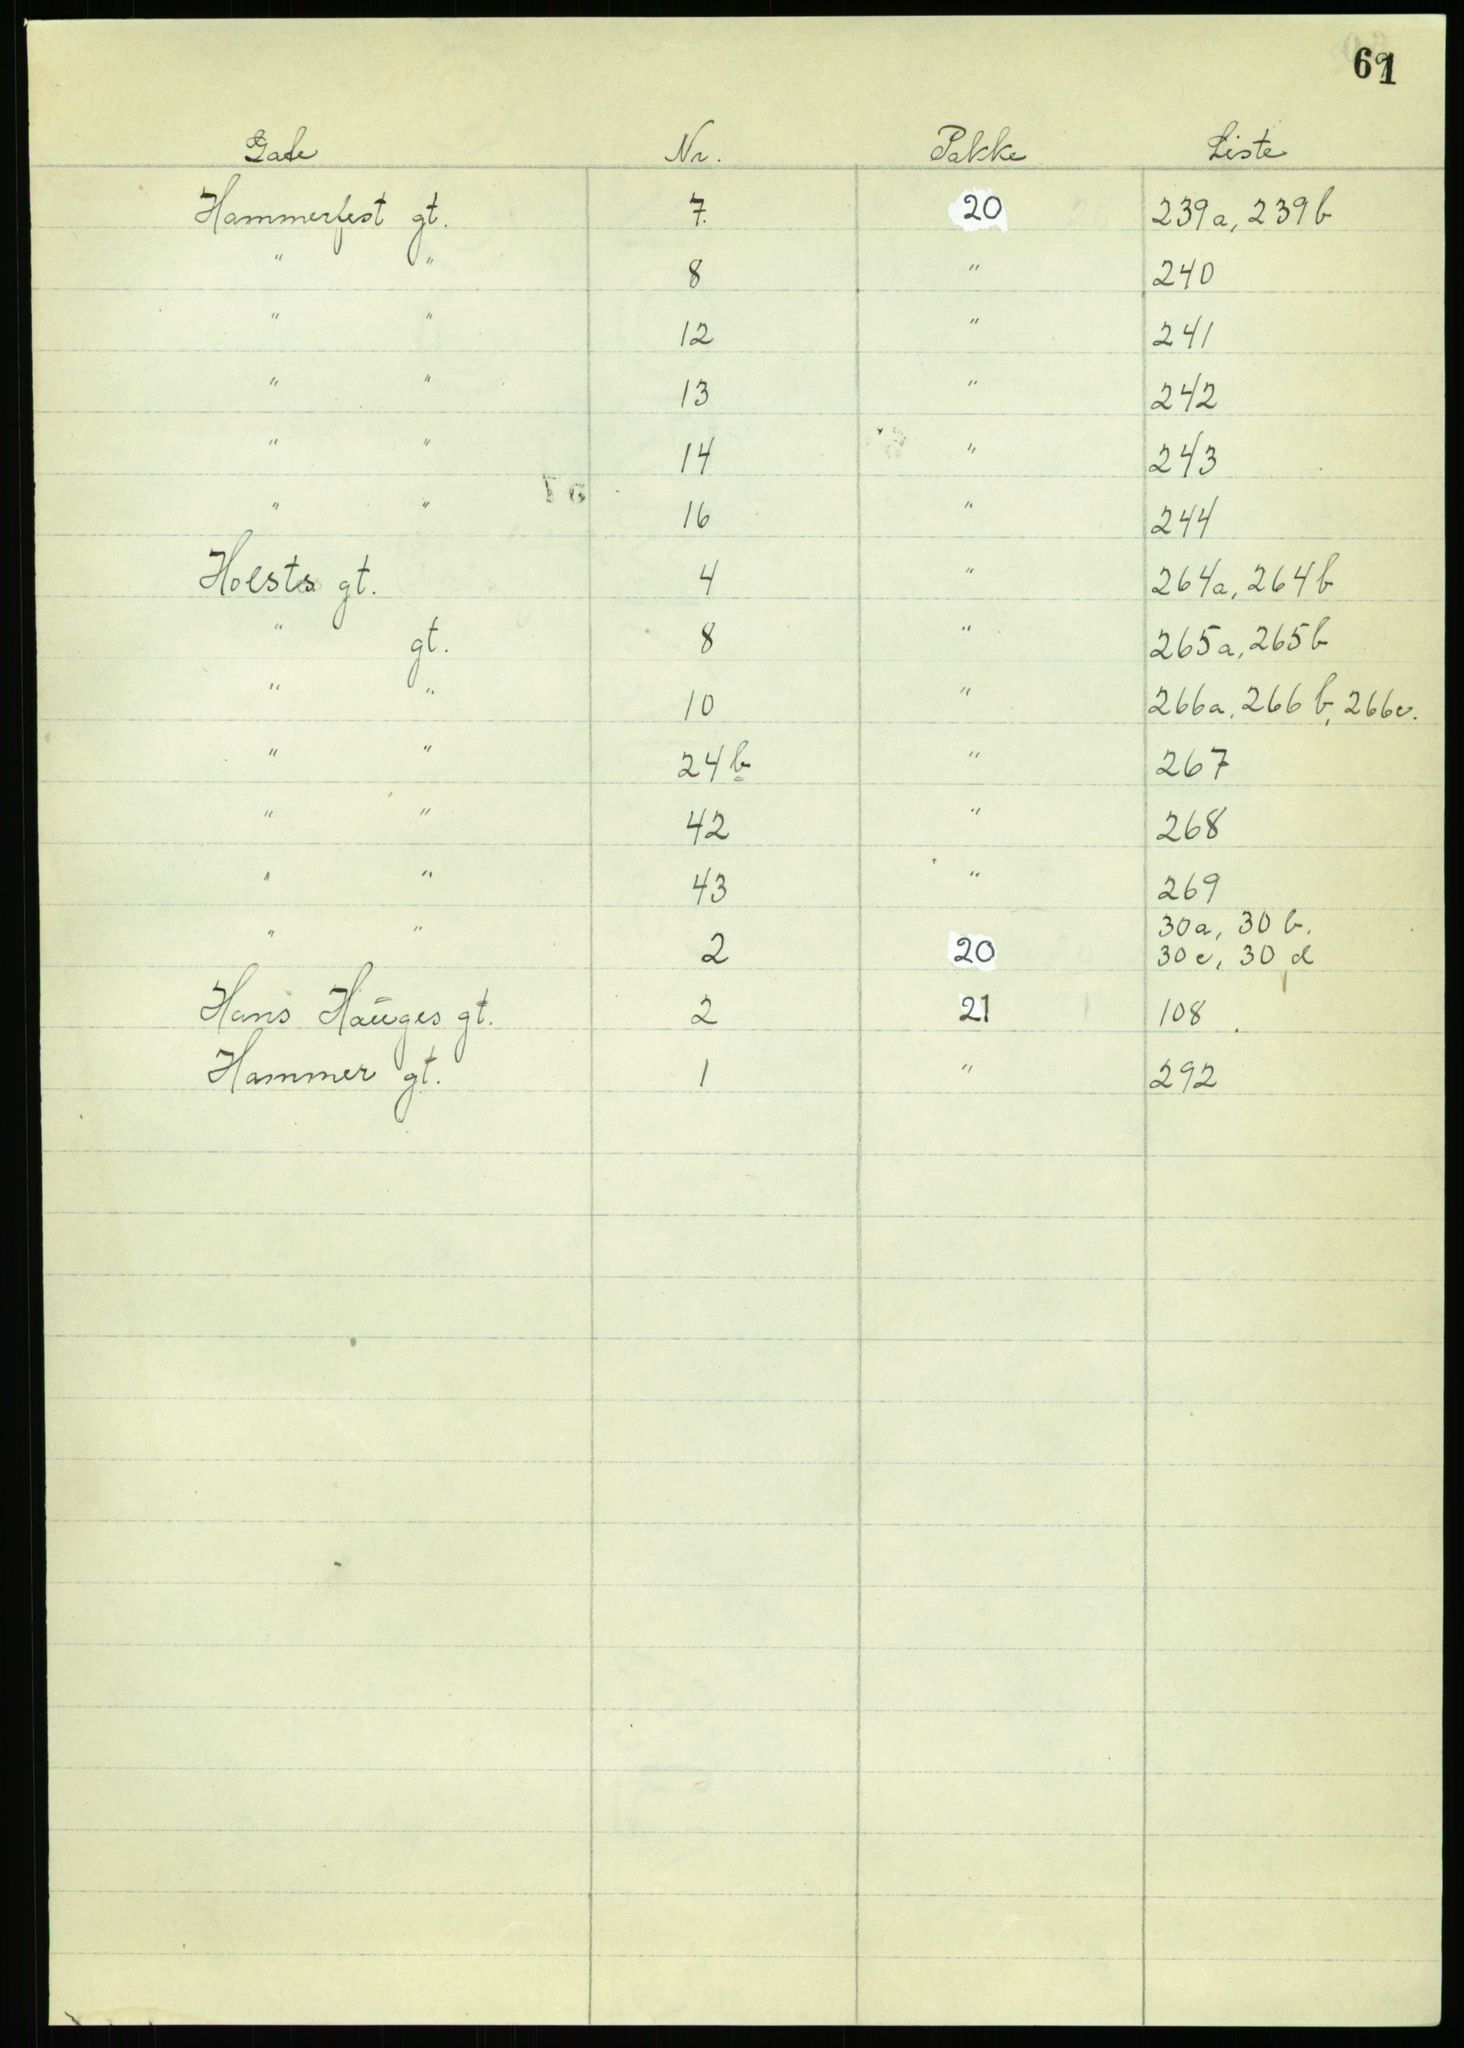 61
Gate Nr. Pakke Liste
Hammerfest gt. 7. 20 239a, 239b
" " 8 " 240
" " 12 " 241
" " 13 " 242
" " 14 " 243
" " 16 " 244
Holsts gt. 4 " 264a, 264b
" gt. 8 " 265a, 265b
" " 10 " 266a, 266b, 266c.
" " 24b " 267
" " 42 " 268
" " 43 " 269
" " 2 20 30a, 30b.
30c, 30d
Hans Hauges gt. 2 21 108
Hammer gt. 1 " 292